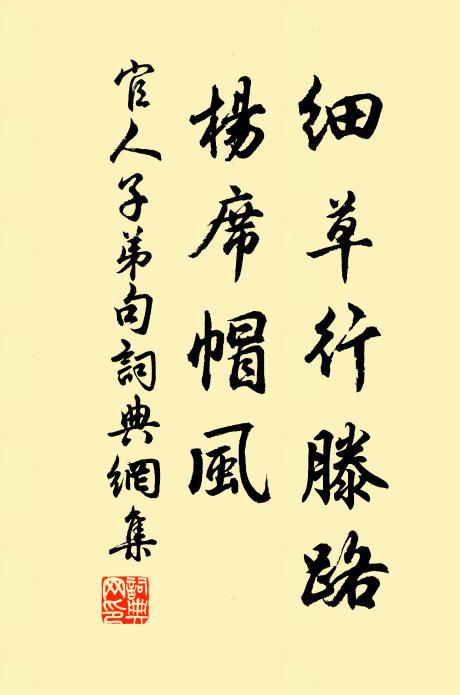 細草行滕路
楊席帽風
官人子弟句詞典網集
詞典
网印